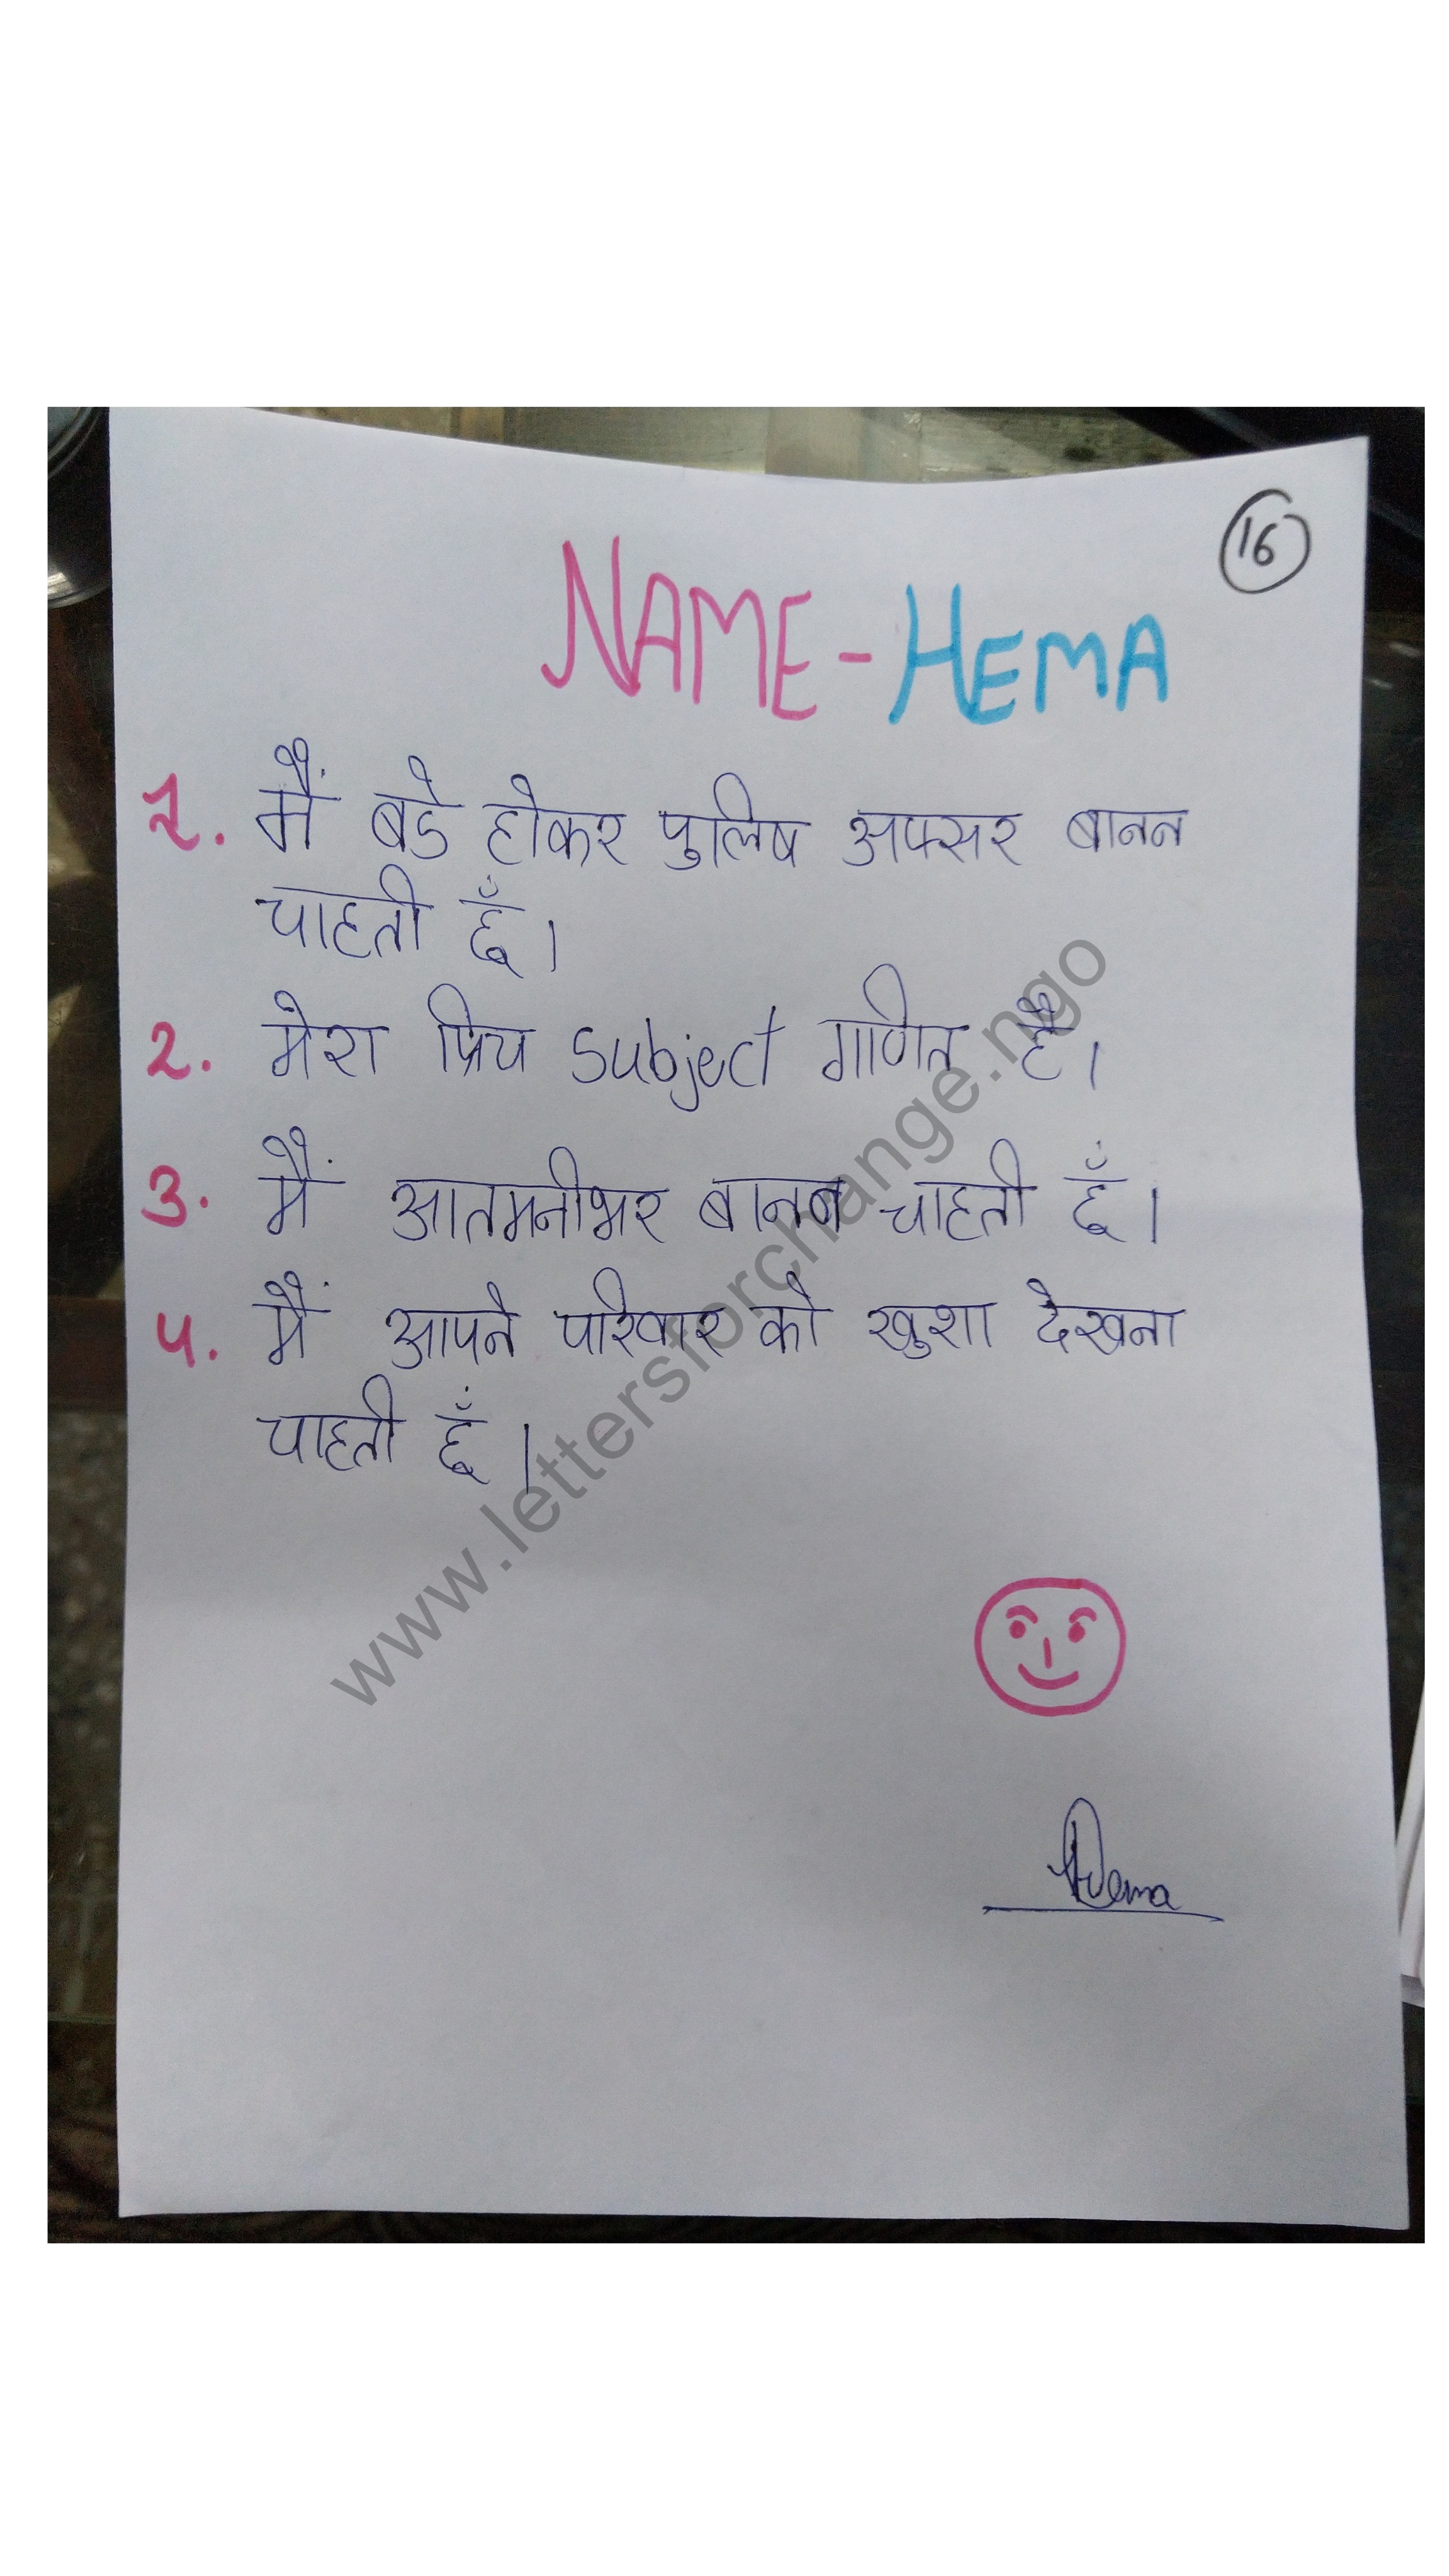 16
NAME - HEMA
1. मैं बडे होकर पुलिष अफ्सर बानन
चाहती हूँ।
2. मेरा प्रिय subject गणित है।
3. मैं आतमनीभर बानन चाहती हूँ।
4. मैं आपने परिवार को खुशा देखना
चाहती हूँ।
Hema
www.lettersforchange.ngo